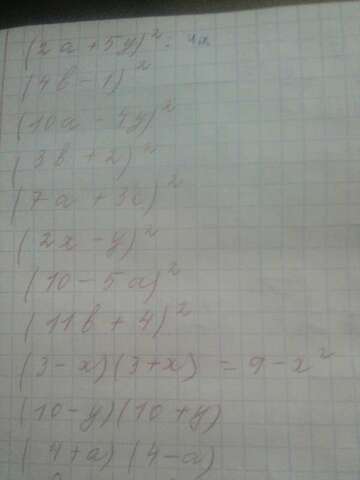 (2a + 5y)² =
(4b - 1)²
(10a - 4y)²
(3b + 2)²
(7a + 3c)²
(2x - y)²
(10 - 5a)²
(11b + 4)²
(3 - x)(3 + x) = 9 - x²
(10 - y)(10 + y)
(4 + a)(4 - a)